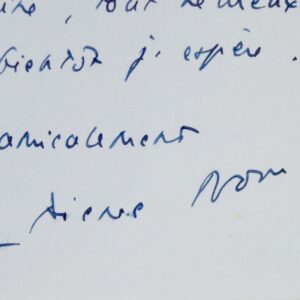 tout le mieux
bientôt j. espère.
amicalement
Pierre Nora